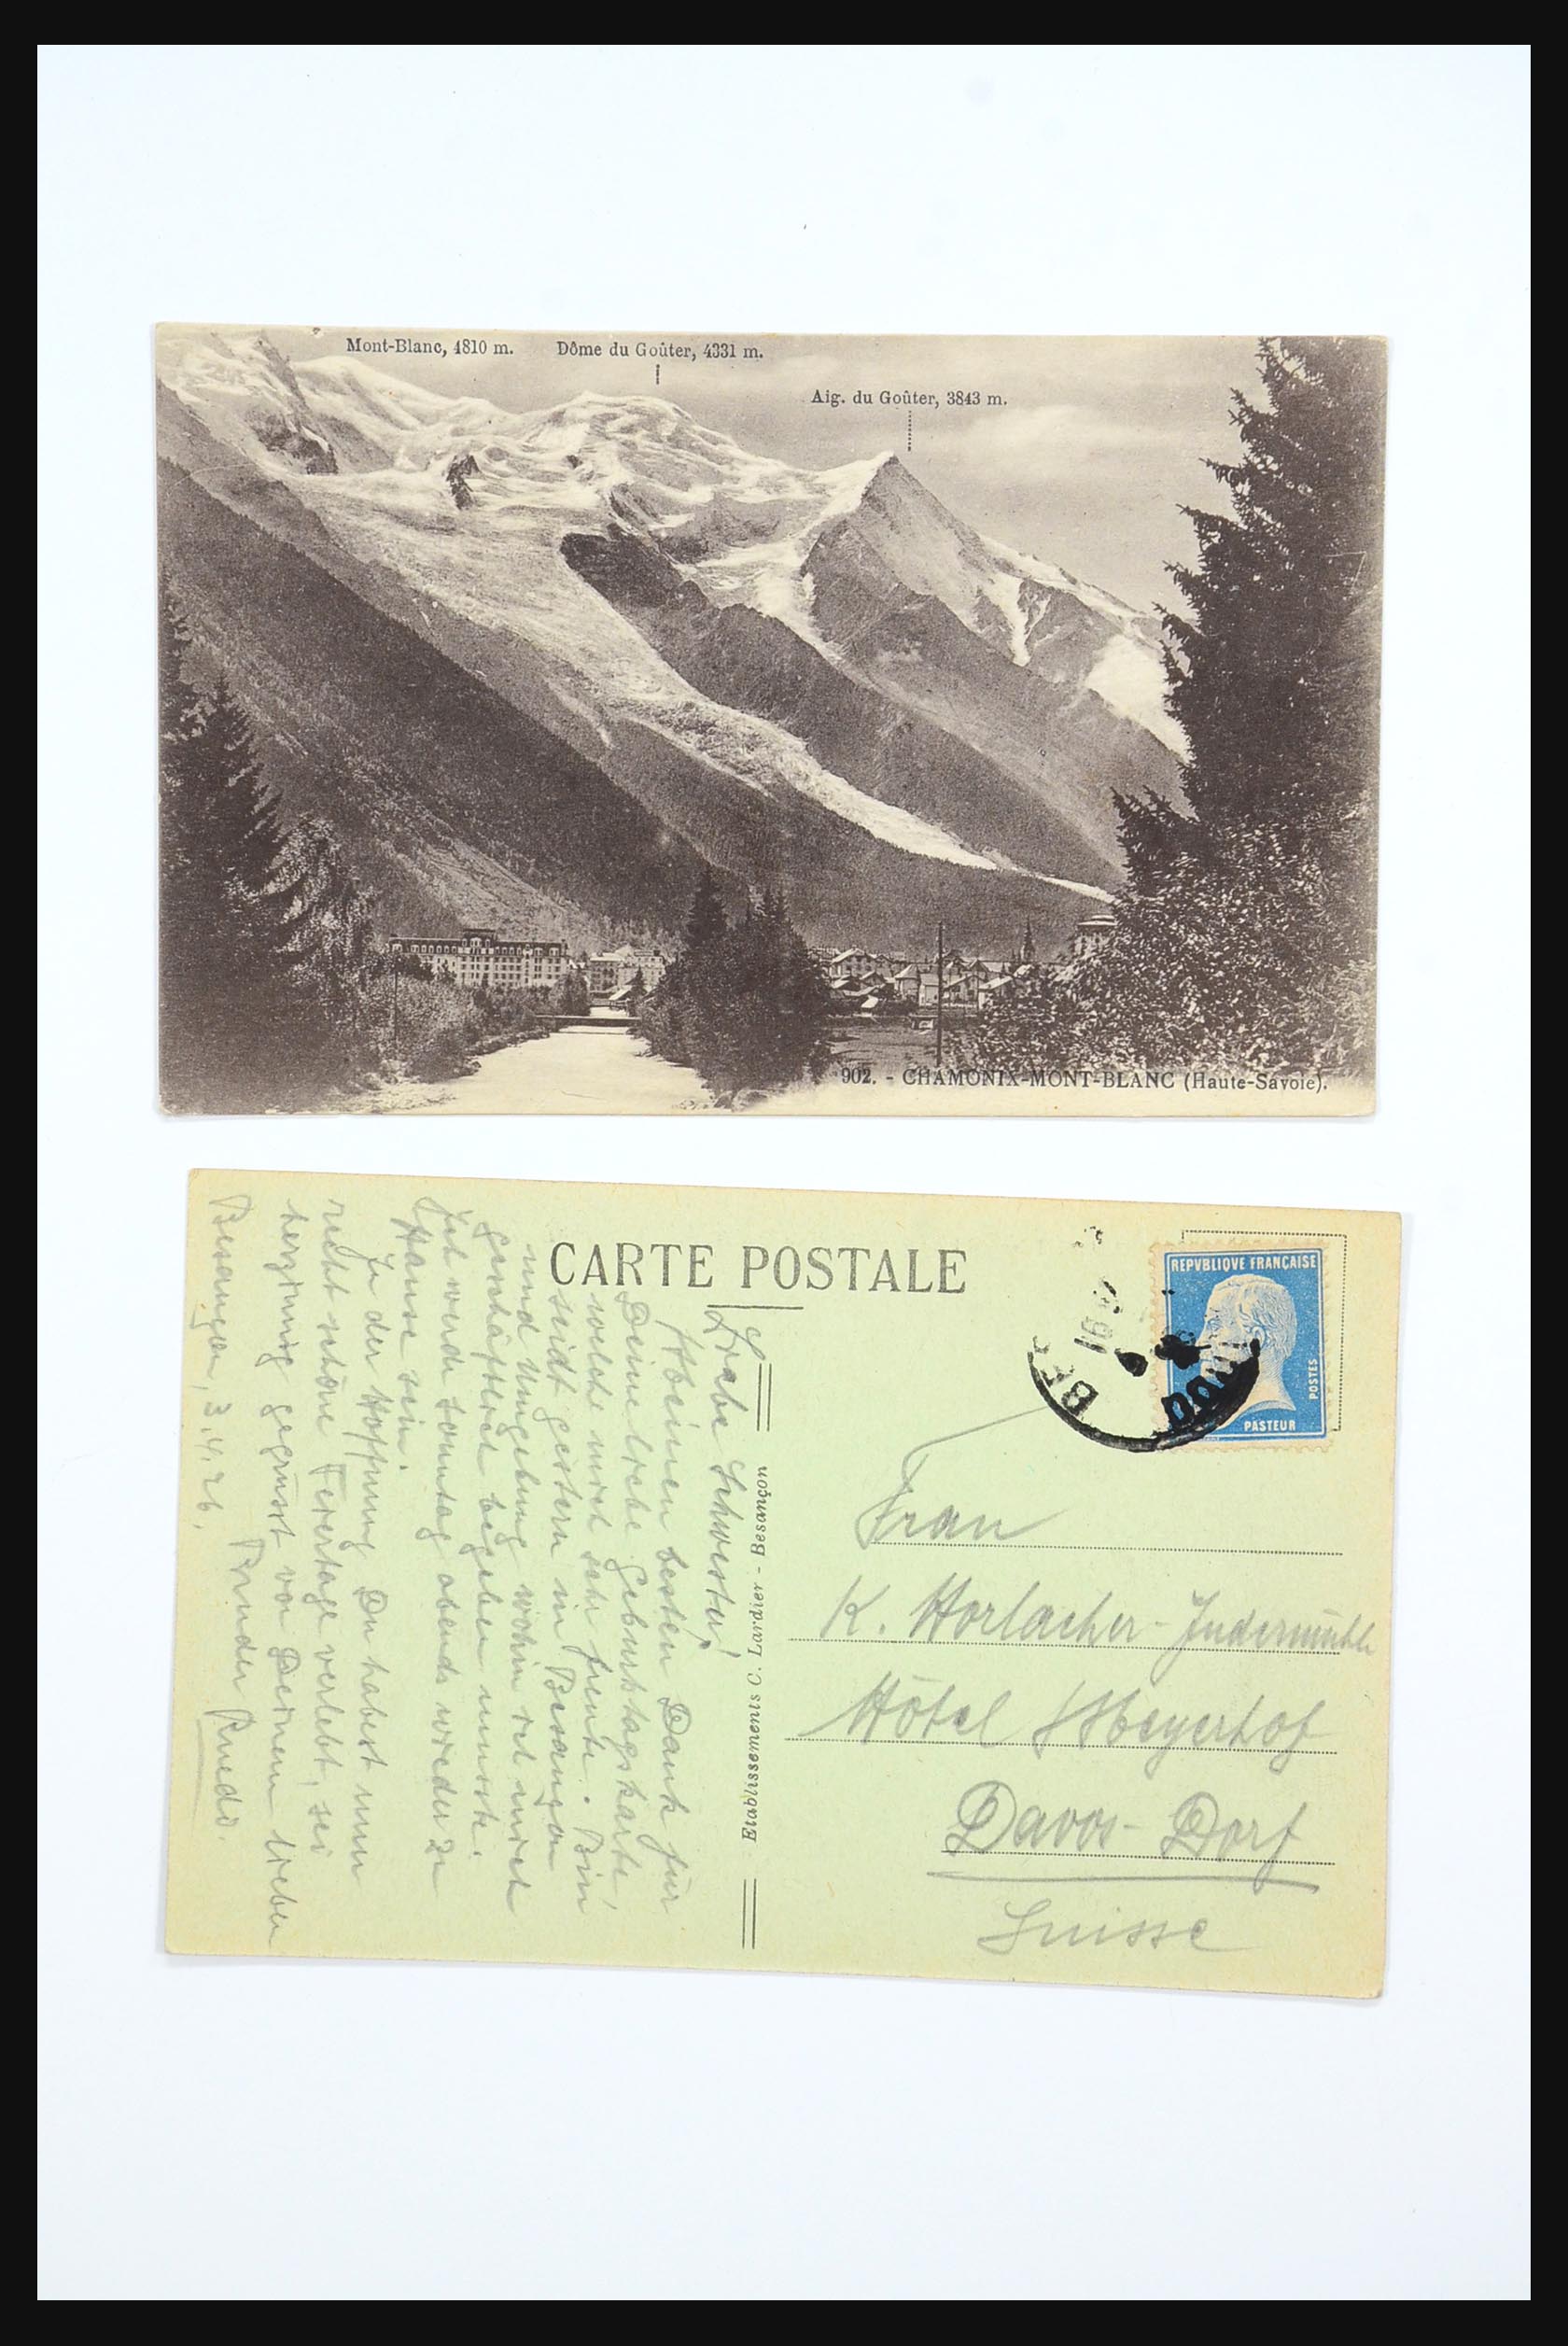 Mont-Blanc, 4810 m.
Dôme du Goûter, 4331 m.
Aig. du Goûter, 3843 m.
902. - CHAMONIX-MONT-BLANC (Haute-Savoie).
CARTE POSTALE
REPVBLIQVE FRANÇAISE
POSTES
PASTEUR
DOUB
Etablissements C. Lardier - Besançon
Frau
K. Horlacher-Indermühle
Hôtel Meyerhof
Davos-Dorf
Suisse
Liebe Schwester!
Meinen besten Dank für
Deine liebe Geburtstagskarte,
welche mich sehr freute. Bin
seit gestern in Besançon
und Umgebung wohin ich mich
geschäftlich begeben musste.
Ich werde Sonntag abends wieder zu
Hause sein.
In der Hoffnung Du habest nun
recht schöne Feiertage verlebt, sei
herzinnig gegrüsst von Deinem lieben
Bruder Ruedi.
Besançon, 3.4.26.